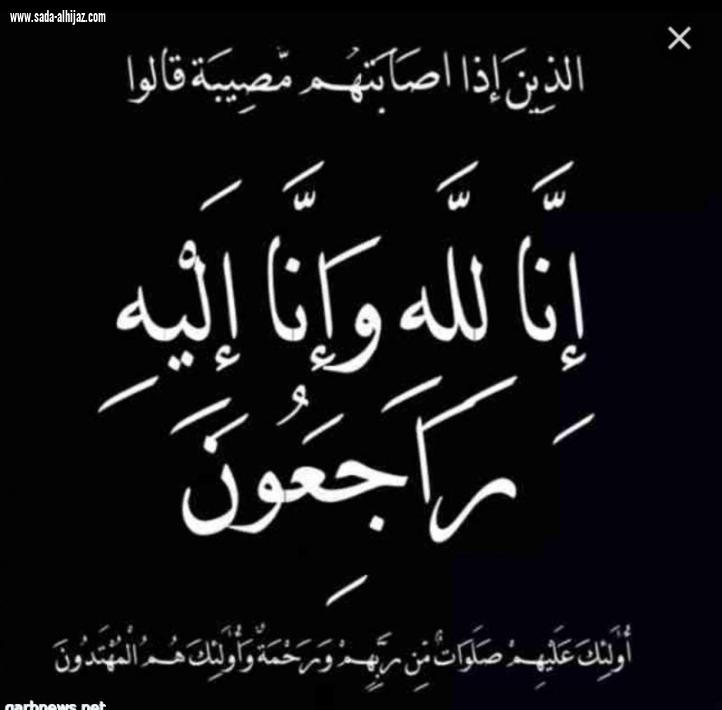 www.sada-alhijaz.com
الذِينَ إذا اصَابَتهُم مّصِيبَة قالوا
إِنَّا للَّه وَإِنَّا إِلَيْهِ
رَاجِعُونَ
أُولَٰئِكَ عَلَيْهِمْ صَلَوَاتٌ مِّن رَبِّهِمْ وَرَحْمَةٌ وَأُولَٰئِكَ هُمُ الْمُهْتَدُونَ
garbnews.net